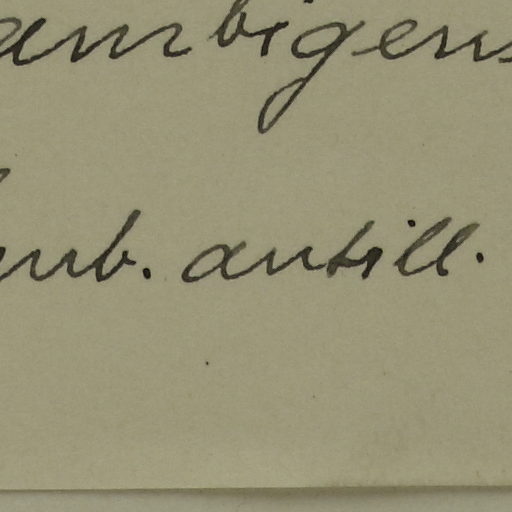 ambigens
ub. antill.